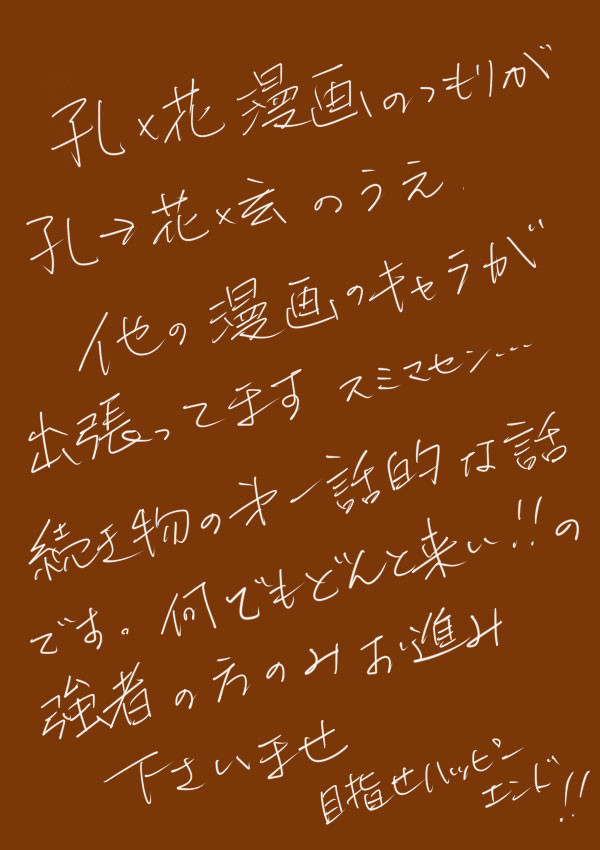 孔×花漫画のつもりが
孔→花×玄のうえ
他の漫画のキャラが
出張ってます スミマセン…
続き物の第一話的な話
です。何でもどんと来い!!の
強者の方のみお進み
下さいませ
目指せハッピー
エンド!!